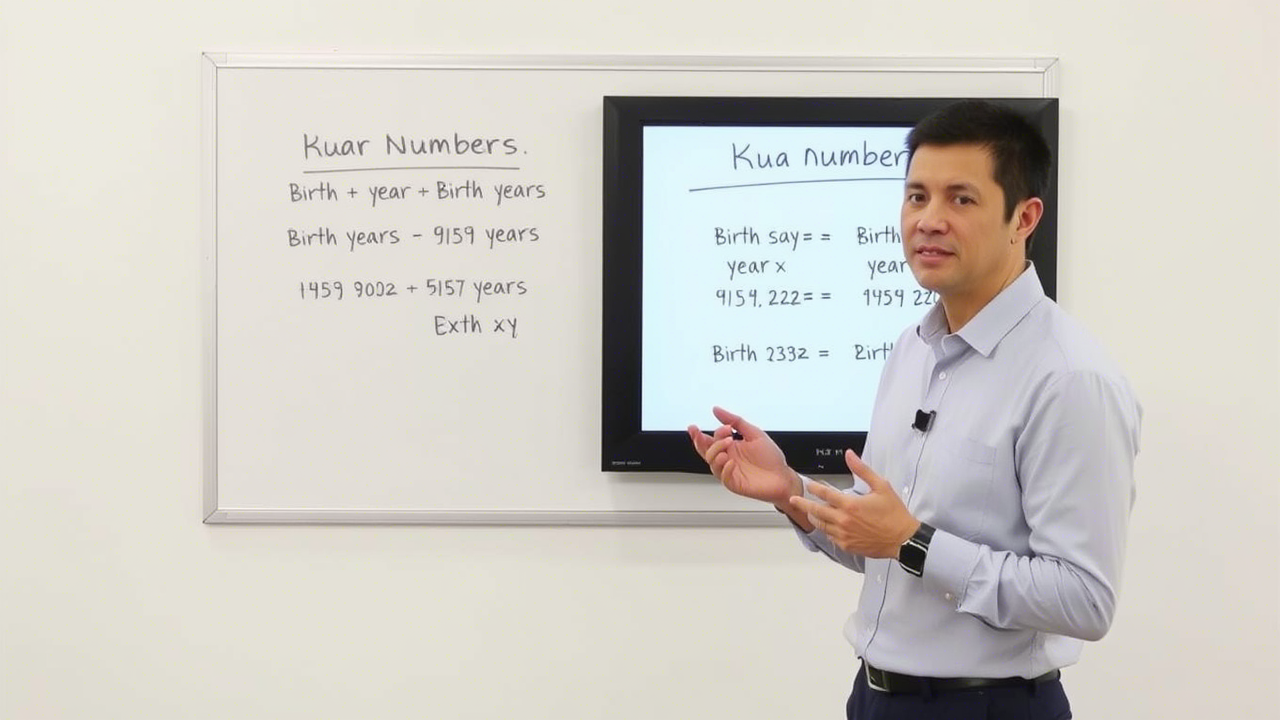 Kuar Numbers.
Birth + year + Birth years
Birth years - 9159 years
1459 9002 + 5157 years
Exth xy
Kua number
Birth say = = Birth
year x year
9154, 222 = = 1454 22
Birth 2332 =